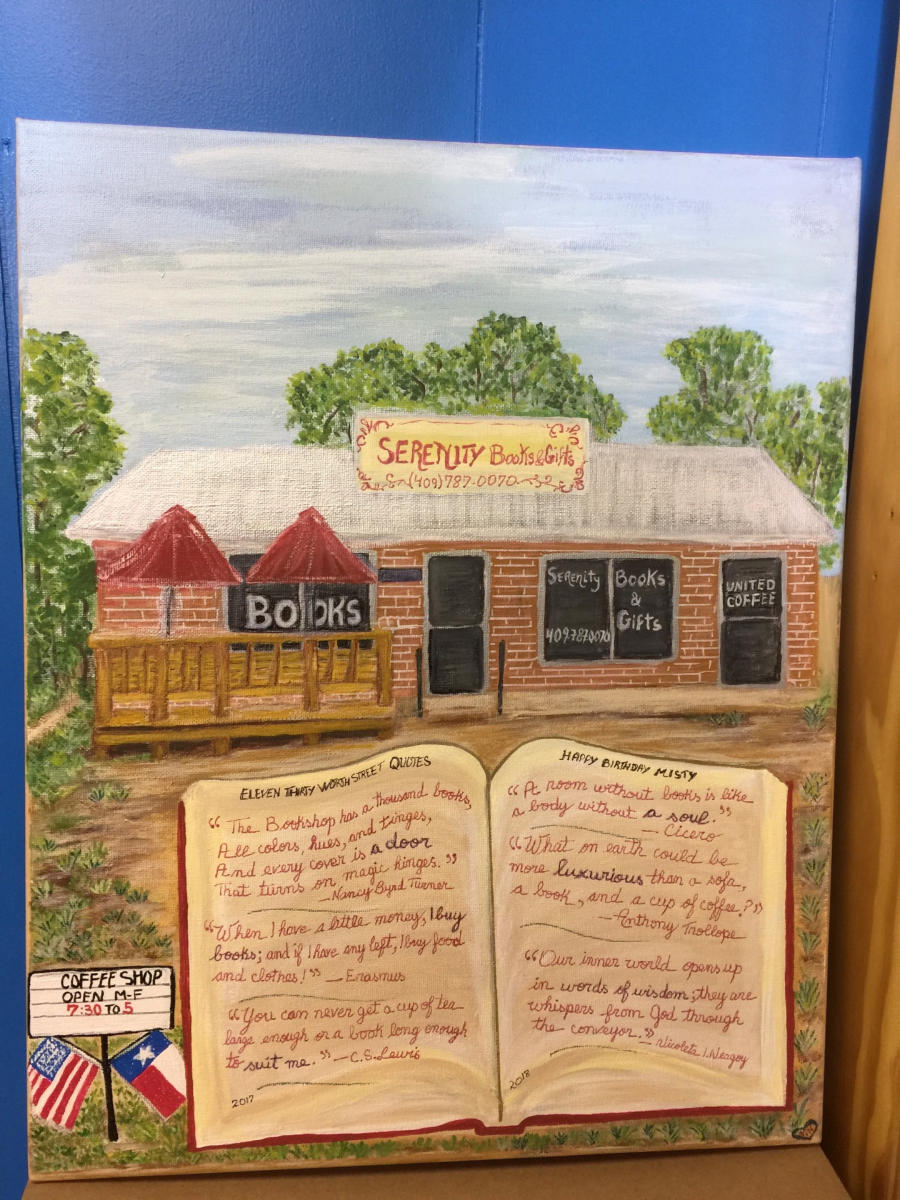 SERENITY Books & Gifts
(409) 787-0070
BOOKS
Serenity
409.787.0070
Books
&
Gifts
UNITED
COFFEE
ELEVEN THIRTY WORTH STREET QUOTES
"The Bookshop has a thousand books,
All colors, hues, and tinges,
And every cover is a door
That turns on magic hinges."
—Nancy Byrd Turner
"When I have a little money, I buy
books; and if I have any left, I buy food
and clothes!" —Erasmus
"You can never get a cup of tea
large enough or a book long enough
to suit me." —C.S.Lewis
2017
HAPPY BIRTHDAY MISTY
"A room without books is like
a body without a soul."
—Cicero
"What on earth could be
more luxurious than a sofa,
a book, and a cup of coffee?"
—Anthony Trollope
"Our inner world opens up
in words of wisdom; they are
whispers from God through
the conveyor."
—Nicoleta I. Neagoy
2018
COFFEE SHOP
OPEN M-F
7:30 TO 5